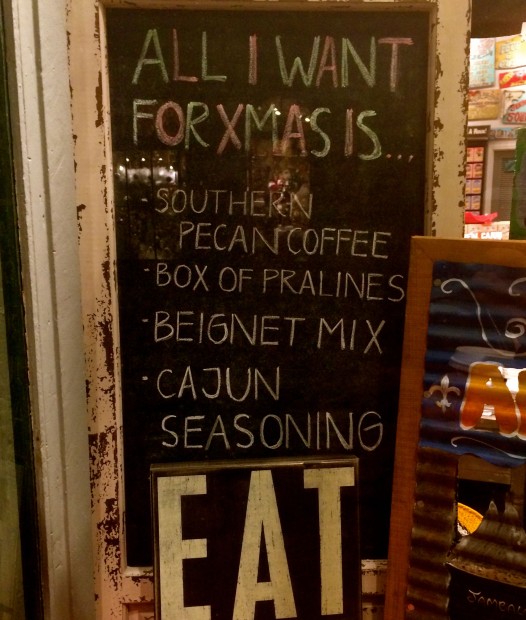 ALL I WANT
FOR XMAS IS...
- SOUTHERN
PECAN COFFEE
- BOX OF PRALINES
- BEIGNET MIX
- CAJUN
SEASONING
EAT